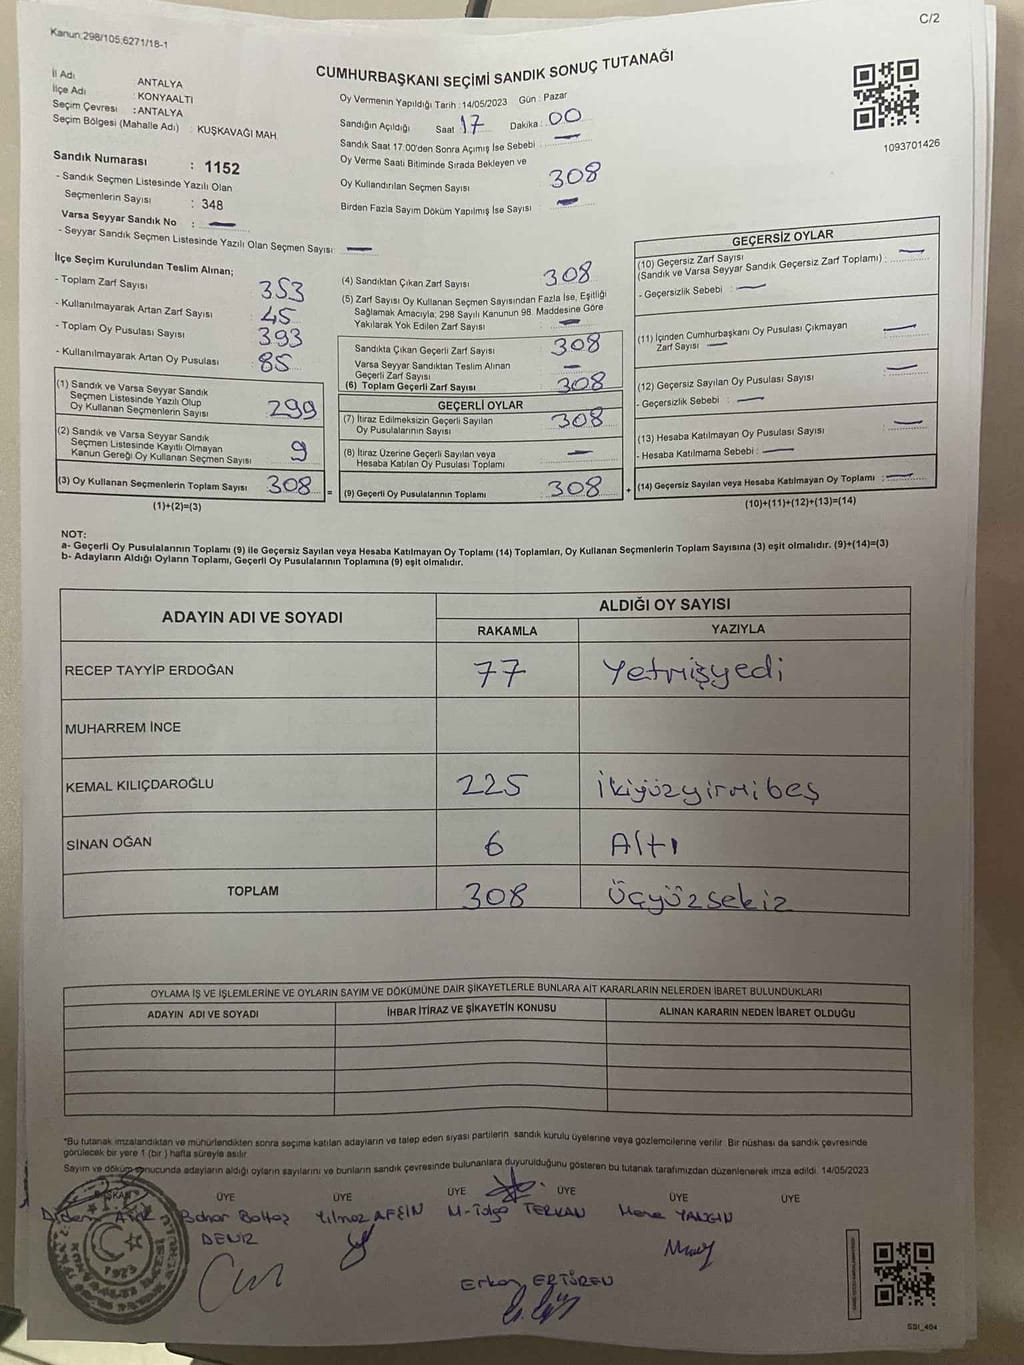 Kanun:298/105,6271/18-1
C/2
CUMHURBAŞKANI SEÇİMİ SANDIK SONUÇ TUTANAĞI
İl Adı : ANTALYA
İlçe Adı : KONYAALTI
Seçim Çevresi : ANTALYA
Seçim Bölgesi (Mahalle Adı) : KUŞKAVAĞI MAH.
Sandık Numarası : 1152
- Sandık Seçmen Listesinde Yazılı Olan
Seçmenlerin Sayısı : 348
Varsa Seyyar Sandık No : —
- Seyyar Sandık Seçmen Listesinde Yazılı Olan Seçmen Sayısı: —
Oy Vermenin Yapıldığı Tarih : 14/05/2023 Gün : Pazar
Sandığın Açıldığı Saat 17 Dakika : 00
Sandık Saat 17:00'den Sonra Açımış İse Sebebi —
Oy Verme Saati Bitiminde Sırada Bekleyen ve
Oy Kullandırılan Seçmen Sayısı 308
Birden Fazla Sayım Döküm Yapılmış İse Sayısı —
1093701426
İlçe Seçim Kurulundan Teslim Alınan;
- Toplam Zarf Sayısı 353
- Kullanılmayarak Artan Zarf Sayısı 45
- Toplam Oy Pusulası Sayısı 393
- Kullanılmayarak Artan Oy Pusulası 85
(1) Sandık ve Varsa Seyyar Sandık
Seçmen Listesinde Yazılı Olup
Oy Kullanan Seçmenlerin Sayısı 299
(2) Sandık ve Varsa Seyyar Sandık
Seçmen Listesinde Kayıtlı Olmayan
Kanun Gereği Oy Kullanan Seçmen Sayısı 9
(3) Oy Kullanan Seçmenlerin Toplam Sayısı 308 =
(1)+(2)=(3)
(4) Sandıktan Çıkan Zarf Sayısı 308
(5) Zarf Sayısı Oy Kullanan Seçmen Sayısından Fazla İse, Eşitliği
Sağlamak Amacıyla; 298 Sayılı Kanunun 98. Maddesine Göre
Yakılarak Yok Edilen Zarf Sayısı —
Sandıkta Çıkan Geçerli Zarf Sayısı 308
Varsa Seyyar Sandıktan Teslim Alınan
Geçerli Zarf Sayısı —
(6) Toplam Geçerli Zarf Sayısı 308
GEÇERLİ OYLAR
(7) İtiraz Edilmeksizin Geçerli Sayılan
Oy Pusulalarının Sayısı 308
(8) İtiraz Üzerine Geçerli Sayılan veya
Hesaba Katılan Oy Pusulası Toplamı —
(9) Geçerli Oy Pusulalarının Toplamı 308 +
GEÇERSİZ OYLAR
(10) Geçersiz Zarf Sayısı
(Sandık ve Varsa Seyyar Sandık Geçersiz Zarf Toplamı) : —
- Geçersizlik Sebebi : —
(11) İçinden Cumhurbaşkanı Oy Pusulası Çıkmayan
Zarf Sayısı —
(12) Geçersiz Sayılan Oy Pusulası Sayısı —
- Geçersizlik Sebebi : —
(13) Hesaba Katılmayan Oy Pusulası Sayısı —
- Hesaba Katılmama Sebebi : —
(14) Geçersiz Sayılan veya Hesaba Katılmayan Oy Toplamı : —
(10)+(11)+(12)+(13)=(14)
NOT:
a- Geçerli Oy Pusulalarının Toplamı (9) ile Geçersiz Sayılan veya Hesaba Katılmayan Oy Toplamı (14) Toplamları, Oy Kullanan Seçmenlerin Toplam Sayısına (3) eşit olmalıdır. (9)+(14)=(3)
b- Adayların Aldığı Oyların Toplamı, Geçerli Oy Pusulalarının Toplamına (9) eşit olmalıdır.
ADAYIN ADI VE SOYADI ALDIĞI OY SAYISI
RAKAMLA YAZIYLA
RECEP TAYYİP ERDOĞAN 77 Yetmişyedi
MUHARREM İNCE
KEMAL KILIÇDAROĞLU 225 İkiyüzyirmibeş
SİNAN OĞAN 6 Altı
TOPLAM 308 Üçyüzsekiz
OYLAMA İŞ VE İŞLEMLERİNE VE OYLARIN SAYIM VE DÖKÜMÜNE DAİR ŞİKAYETLERLE BUNLARA AİT KARARLARIN NELERDEN İBARET BULUNDUKLARI
ADAYIN ADI VE SOYADI İHBAR İTİRAZ VE ŞİKAYETİN KONUSU ALINAN KARARIN NEDEN İBARET OLDUĞU
*Bu tutanak imzalandıktan ve mühürlendikten sonra seçime katılan adayların ve talep eden siyasi partilerin sandık kurulu üyelerine veya gözlemcilerine verilir. Bir nüshası da sandık çevresinde
görülecek bir yere 1 (bir ) hafta süreyle asılır.
Sayım ve döküm sonucunda adayların aldığı oyların sayılarını ve bunların sandık çevresinde bulunanlara duyurulduğunu gösteren bu tutanak tarafımızdan düzenlenerek imza edildi. 14/05/2023
BAŞKAN ÜYE ÜYE ÜYE ÜYE ÜYE ÜYE
Yılmaz AFŞİN TERKAN YANGIN
DENİZ
Erkan ERTÜREN
1923
SSI_404